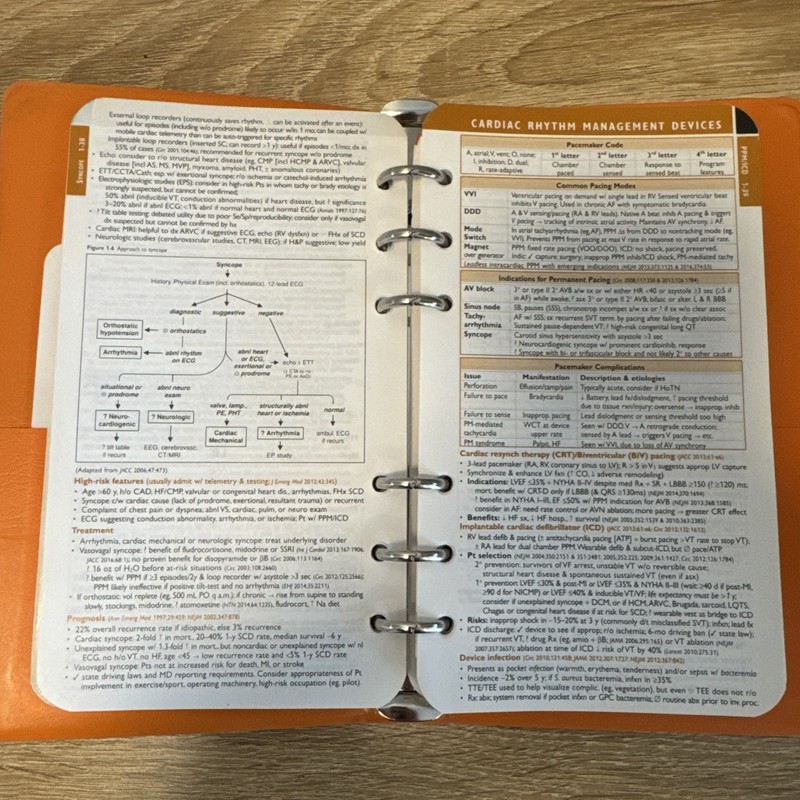 SYNCOPE 1-38
External loop recorders (continuously saves rhythm, ∴ can be activated after an event):
useful for episodes (including w/o prodrome) likely to occur w/in 1 mo; can be coupled w/
mobile cardiac telemetry than can be auto-triggered for specific rhythms
Implantable loop recorders (inserted SC; can record >1 y): useful if episodes <1/mo; dx in
55% of cases; recommended for recurrent syncope w/o prodrome
• Echo: consider to r/o structural heart disease (eg, CMP [incl HCMP & ARVC], valvular
disease [incl AS, MS, MVP], myxoma, amyloid, PHT, ± anomalous coronaries)
• ETT/CCTA/Cath: esp. w/ exertional syncope; r/o ischemia or catechol-induced arrhythmia
• Electrophysiologic studies (EPS): consider in high-risk Pts in whom tachy or brady etiology is
strongly suspected, but cannot be confirmed;
50% abnl (inducible VT, conduction abnormalities) if heart disease, but ? significance
3–20% abnl if abnl ECG; <1% abnl if normal heart and normal ECG (Annals 1997;127:76)
• ? Tilt table testing: debated utility due to poor Se/Sp/reproducibility; consider only if vasovagal
dx suspected but cannot be confirmed by hx
• Cardiac MRI: helpful to dx ARVC if suggestive ECG, echo (RV dysfxn) or ⊕ FHx of SCD
• Neurologic studies (cerebrovascular studies, CT, MRI, EEG): if H&P suggestive; low yield
Figure 1-6 Approach to syncope
Syncope
History, Physical Exam (incl. orthostatics), 12-lead ECG
diagnostic suggestive negative
Orthostatic
hypotension
⊕ orthostatics
Arrhythmia
abnl rhythm
on ECG
abnl heart
or ECG,
exertional or
∅ prodrome
echo ± ETT
situational or
⊕ prodrome
abnl neuro
exam
valve, tamp.,
PE, PHT
structurally abnl
heart or ischemia
normal
? Neuro-
cardiogenic
? Neurologic
Cardiac
Mechanical
? Arrhythmia
ambul. ECG
if recurs
? tilt table
if recurs
EEG, cerebrovasc,
CT/MRI
EP study
(Adapted from JACC 2006;47:473)
High-risk features (usually admit w/ telemetry & testing; J Emerg Med 2012;42:345)
• Age >60 y, h/o CAD, HF/CMP, valvular or congenital heart dis., arrhythmias, FHx SCD
• Syncope c/w cardiac cause (lack of prodrome, exertional, resultant trauma) or recurrent
• Complaint of chest pain or dyspnea, abnl VS, cardiac, pulm, or neuro exam
• ECG suggesting conduction abnormality, arrhythmia, or ischemia; Pt w/ PPM/ICD
Treatment
• Arrhythmia, cardiac mechanical or neurologic syncope: treat underlying disorder
• Vasovagal syncope: ? benefit of fludrocortisone, midodrine or SSRI (Int J Cardiol 2013;167:1906,
JACC 2016;68:1); no proven benefit for disopyramide or βB (Circ 2006;113:1164)
? 16 oz of H₂O before at-risk situations (Circ 2003;108:2660)
? benefit w/ PPM if ≥3 episodes/2y & loop recorder w/ asystole >3 sec (Circ 2012;125:2566);
PPM likely ineffective if positive tilt-test and no arrhythmia (EHJ 2014;35:2211)
• If orthostatic: volume replete (eg, 500 mL PO q a.m.); if chronic → rise from supine to standing
slowly, stockings, midodrine, ? atomoxetine (HTN 2014;64:1235), fludrocort, ? Na diet
Prognosis (Ann Emerg Med 1997;29:459; NEJM 2002;347:878)
• 22% overall recurrence rate if idiopathic, else 3% recurrence
• Cardiac syncope: 2-fold ↑ in mort., 20–40% 1-y SCD rate, median survival ~6 y
• Unexplained syncope w/ 1.3-fold ↑ in mort., but noncardiac or unexplained syncope w/ nl
ECG, no h/o VT, no HF, age <45 → low recurrence rate and <5% 1-y SCD rate
• Vasovagal syncope: Pts not at increased risk for death, MI, or stroke
• ✓ state driving laws and MD reporting requirements. Consider appropriateness of Pt
involvement in exercise/sport, operating machinery, high-risk occupation (eg, pilot).
CARDIAC RHYTHM MANAGEMENT DEVICES
PPM/ICD 1-39
Pacemaker Code
A, atrial; V, vent; O, none; 1st letter 2nd letter 3rd letter 4th letter
I, inhibition; D, dual; Chamber Chamber Response to Program
R, rate-adaptive paced sensed sensed beat features
Common Pacing Modes
VVI Ventricular pacing on demand w/ single lead in RV. Sensed ventricular beat
inhibits V pacing. Used in chronic AF with symptomatic bradycardia.
DDD A & V sensing/pacing (RA & RV leads). Native A beat inhib A pacing & triggers
V pacing → tracking of intrinsic atrial activity. Maintains AV synchrony, ↓ AF.
Mode In atrial tachyarrhythmia (eg, AF), PPM Δs from DDD to nontracking mode (eg,
Switch VVI). Prevents PPM from pacing at max V rate in response to rapid atrial rate.
Magnet PPM: fixed rate pacing (VOO/DOO). ICD: no shock, pacing preserved.
over generator Indic: ✓ capture; surgery; inapprop PPM inhib/ICD shock, PM-mediated tachy
Leadless intracardiac PPM with emerging indications
Indications for Permanent Pacing (Circ 2008;117:350 & 2013;126:1784)
AV block 3° or type II 2° AVB a/w sx or w/ either HR <40 or asystole ≥3 sec (≥5 if
in AF) while awake; ? asx 3° or type II 2° AVB; bifasc or alter. L & R BBB
Sinus node SB, pauses (SSS), chronotrop incompet a/w sx or ? if sx w/o clear assoc
Tachy- AF w/ SSS; sx recurrent SVT term. by pacing after failing drugs/ablation;
arrhythmia Sustained pause-dependent VT; ? high-risk congenital long QT
Syncope Carotid sinus hypersensitivity with asystole >3 sec
? Neurocardiogenic syncope w/ prominent cardioinhib. response
? Syncope with bi- or trifascicular block and not likely 2° to other causes
Pacemaker Complications
Issue Manifestation Description & etiologies
Perforation Effusion/tamp/pain Typically acute, consider if HoTN
Failure to pace Bradycardia ↓ Battery, lead fx/dislodgment, ↑ pacing threshold
due to tissue rxn/injury; oversense → inapprop. inhib
Failure to sense Inapprop. pacing Lead dislodgment or sensing threshold too high
PM-mediated WCT at device Seen w/ DDD. V→A retrograde conduction;
tachycardia upper rate sensed by A lead → triggers V pacing → etc.
PM syndrome Palpit, HF Seen w/ VVI, due to loss of AV synchrony
Cardiac resynch therapy (CRT)/Biventricular (BiV) pacing (JACC 2013;61:e6)
• 3-lead pacemaker (RA, RV, coronary sinus to LV); R > S in V₁ suggests approp LV capture
• Synchronize & enhance LV fxn (↑ CO, ↓ adverse remodeling)
• Indications: LVEF ≤35% + NYHA II–IV despite med Rx + SR + LBBB ≥150 (? ≥120) ms;
mort. benefit w/ CRT-D only if LBBB (& QRS ≥130ms) (NEJM 2014;370:1694)
? benefit in NYHA I–III, EF ≤50% w/ PPM indication for AVB (NEJM 2013;368:1585)
consider in AF need rate control or AVN ablation; more pacing → greater CRT effect
• Benefits: ↓ HF sx, ↓ HF hosp., ↑ survival (NEJM 2005;352:1539 & 2010;363:2385)
Implantable cardiac defibrillator (ICD) (JACC 2013;61:e6; Circ 2012;132:1613)
• RV lead: defib & pacing (± antitachycardia pacing [ATP] = burst pacing >VT rate to stop VT);
± RA lead for dual chamber PPM. Wearable defib & subcut-ICD, but ∅ pace/ATP
• Pt selection
2° prevention: survivors of VF arrest, unstable VT w/o reversible cause;
structural heart disease & spontaneous sustained VT (even if asx)
1° prevention: LVEF ≤30% & post-MI or LVEF ≤35% & NYHA II–III (wait: ≥40 d if post-MI,
≥90 d for NICMP) or LVEF ≤40% & inducible VT/VF; life expectancy must be >1 y;
consider if unexplained syncope + DCM, or if HCM, ARVC, Brugada, sarcoid, LQTS,
Chagas or congenital heart disease if at risk for SCD; ? wearable vest as bridge to ICD
• Risks: inapprop shock in ~15–20% at 3 y (commonly d/t misclassified SVT); infxn; lead fx
• ICD discharge: ✓ device to see if approp; r/o ischemia; 6-mo driving ban (✓ state law);
if recurrent VT, ? drug Rx (eg, amio + βB, JAMA 2006;295:165) or VT ablation (NEJM
2007;357:2657); ablation at time of ICD ↓ risk of VT by 40% (Lancet 2010;375:31)
Device infection
• Presents as pocket infection (warmth, erythema, tenderness) and/or sepsis w/ bacteremia
• Incidence ~2% over 5 y; if S. aureus bacteremia, infxn in ≥35%
• TTE/TEE used to help visualize complic. (eg, vegetation), but even ⊖ TEE does not r/o
• Rx: abx; system removal if pocket infxn or GPC bacteremia, ∅ routine abx prior to inv. proc.